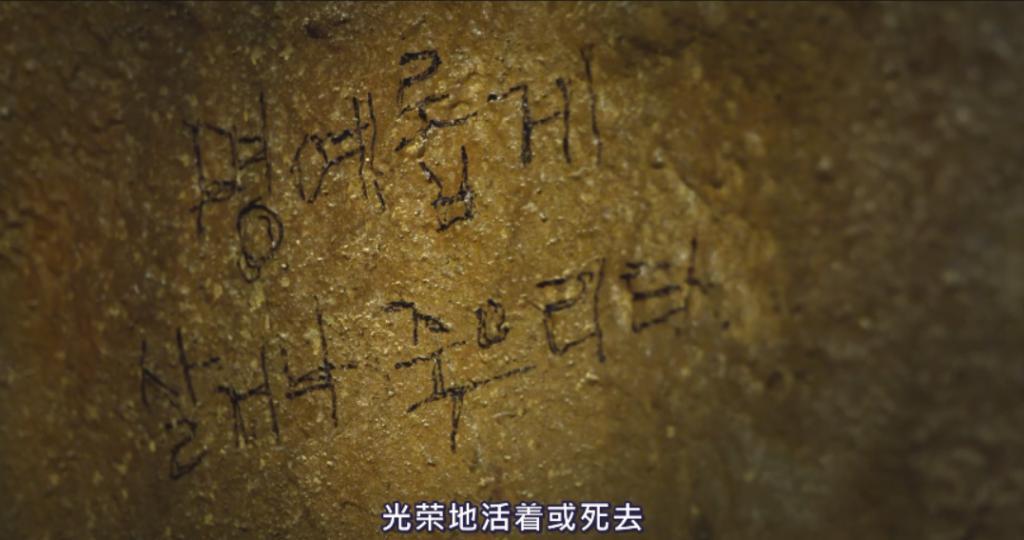 명예롭게
살거나 죽으리라
光荣地活着或死去